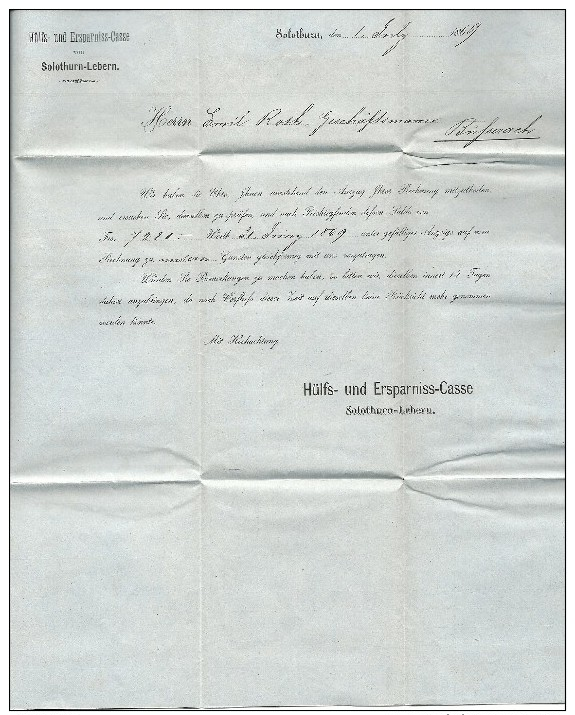 Hülfs- und Ersparniss-Casse
von
Solothurn-Lebern.
Solothurn, den 1. July 1869
Herrn Emil Roth Geschäftsmann
Wir haben die Ehre, Ihnen umstehend den Auszug Ihrer Rechnung mitzutheilen
und ersuchen Sie, denselben zu prüfen und nach Richtigfinden dessen Saldo von
Frs. 7281.- Werth 30. Juny 1869 unter gefälliger Anzeige auf neue
Rechnung zu unseren Gunsten gleichförmig mit uns vorzutragen.
Würden Sie Bemerkungen zu machen haben, so bitten wir, dieselben innert 14 Tagen
daher anzubringen, da nach Verfluss dieser Zeit auf dieselben keine Rücksicht mehr genommen
werden könnte.
Mit Hochachtung
Hülfs- und Ersparniss-Casse
Solothurn-Lebern.